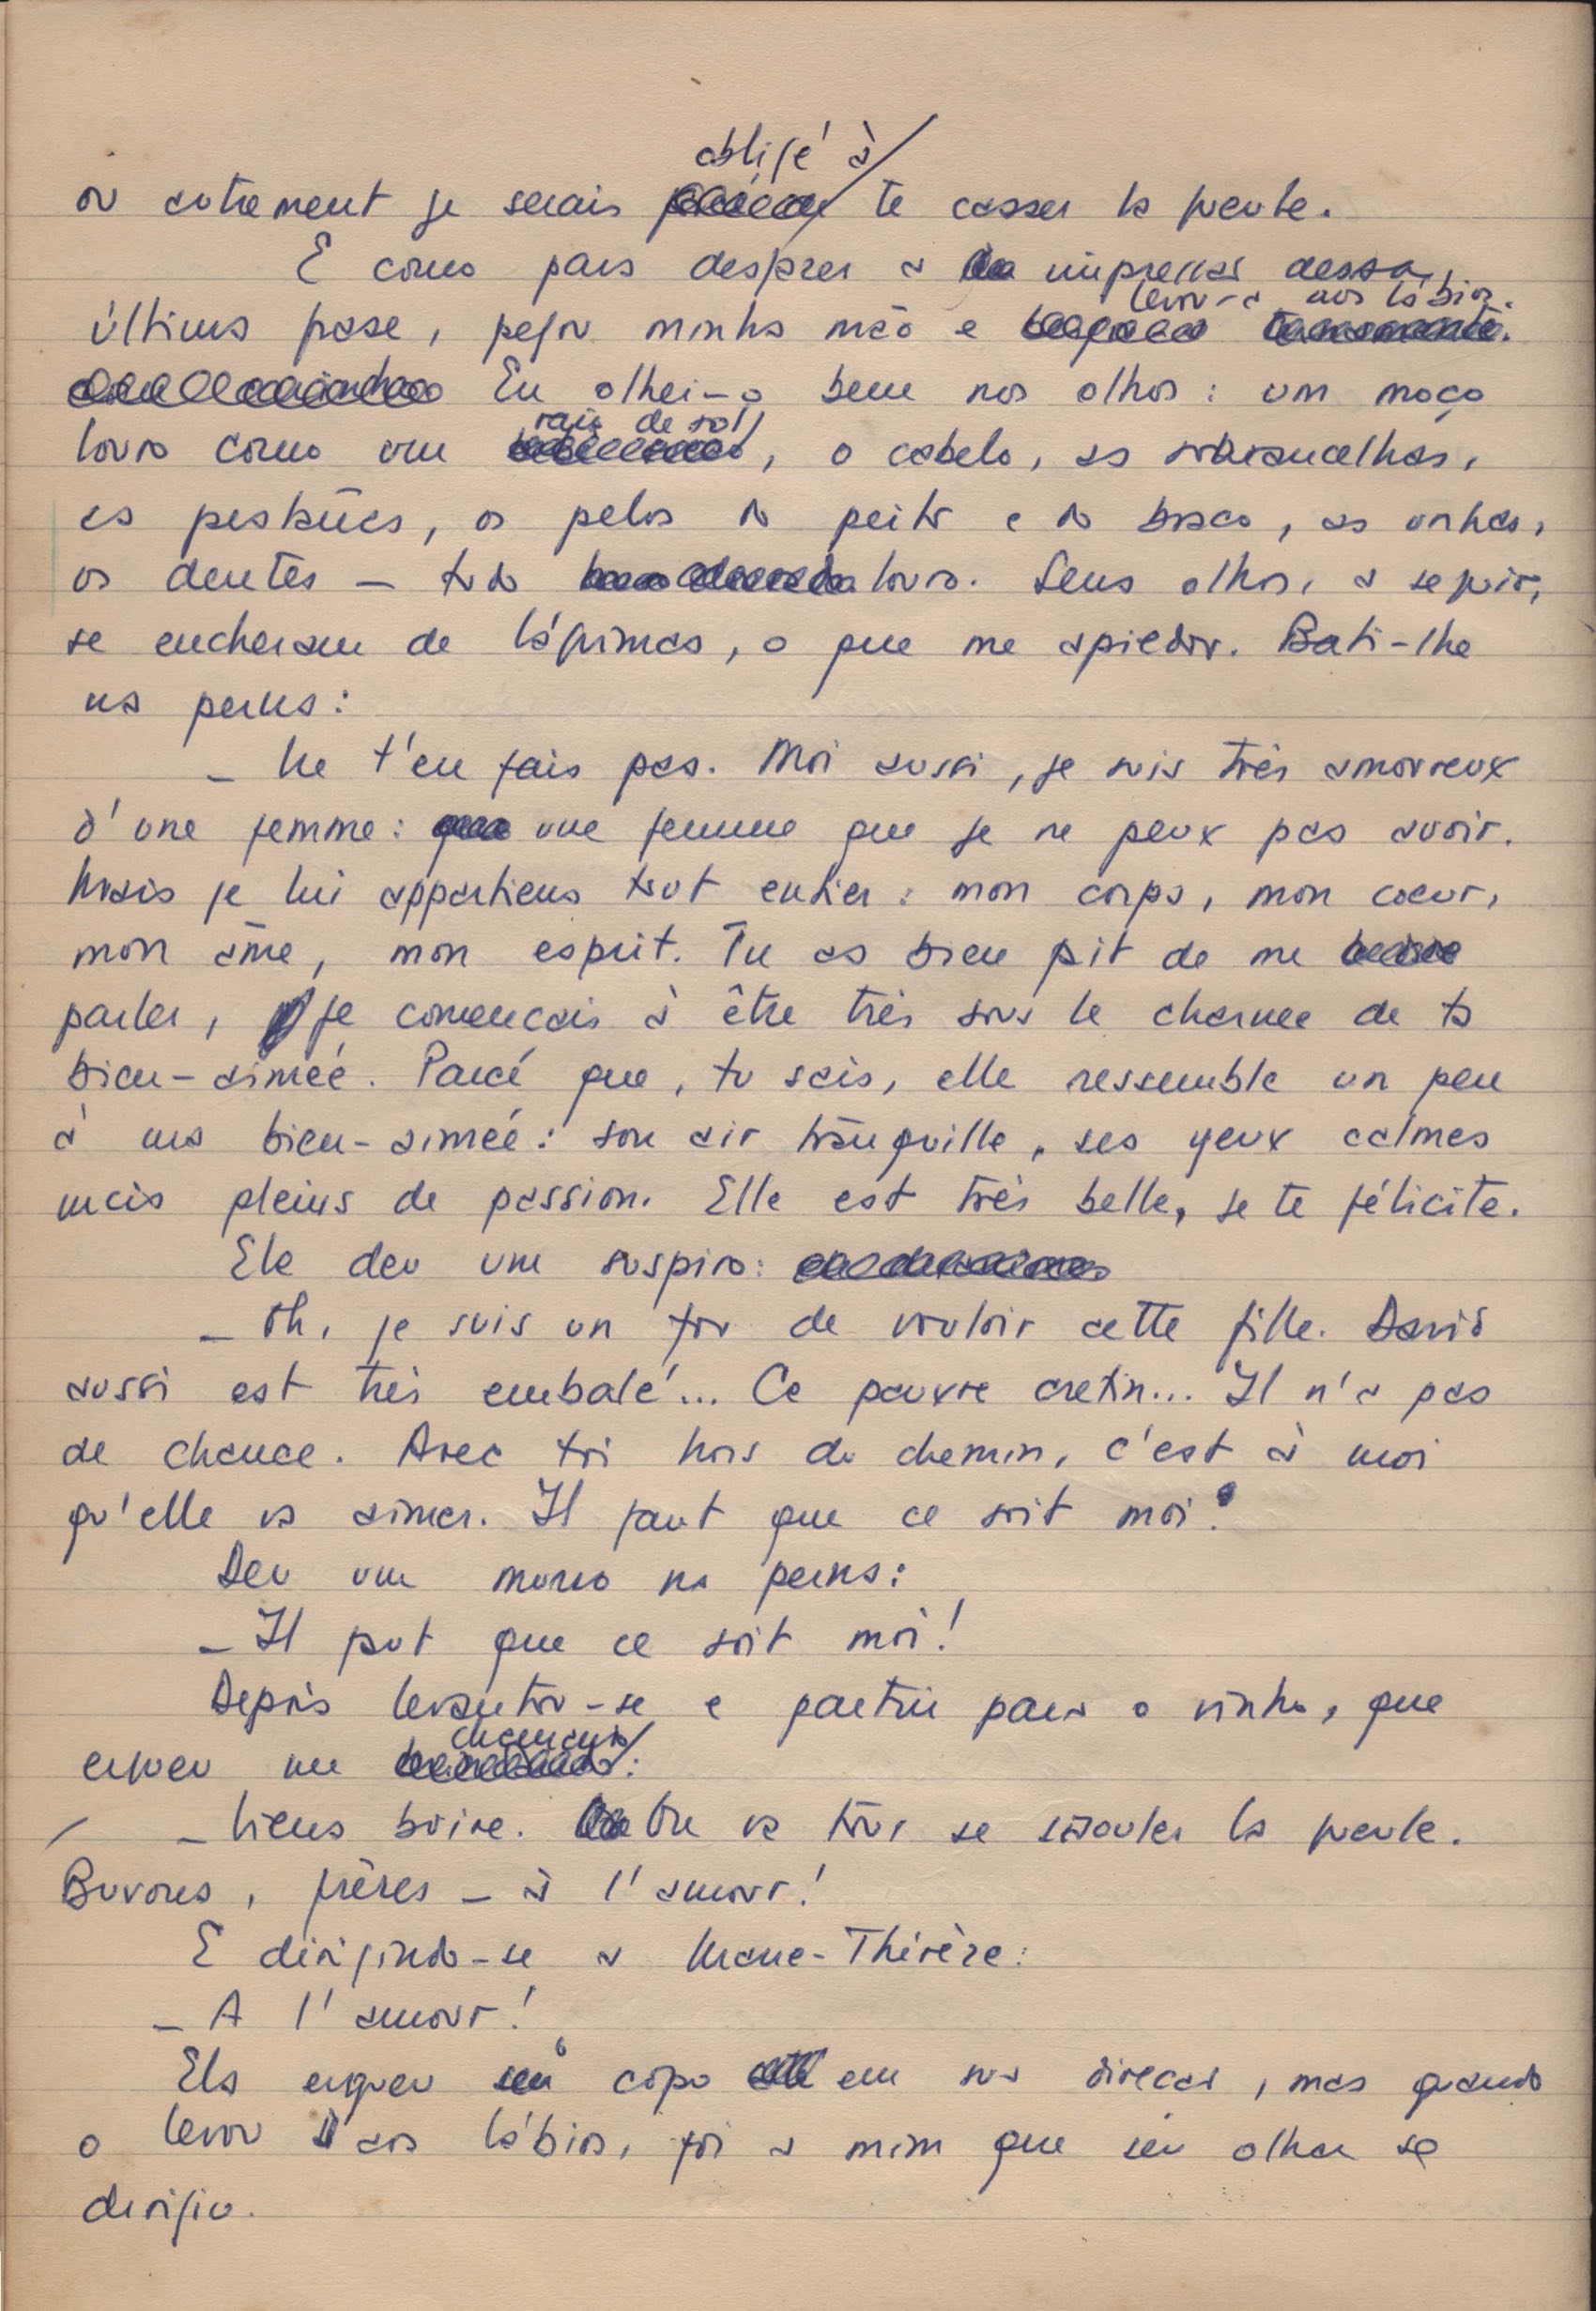 obligé à
ou autrement je serais te casser la gueule.
E como para desfazer a impressão dessa
levou-a aos lábios.
última frase, pegou minha mão e
Eu olhei-o bem nos olhos: um moço
raio de sol
louro como um , o cabelo, as sobrancelhas,
as pestanas, os pelos do peito e do braço, as unhas,
os dentes — tudo louro. Seus olhos, a seguir,
se encheram de lágrimas, o que me apiedou. Bati-lhe
na perna:
— Ne t'en fais pas. Moi aussi, je suis très amoureux
d'une femme: une femme que je ne peux pas avoir.
Mais je lui appartiens tout entier: mon corps, mon coeur,
mon âme, mon esprit. Tu as bien fait de me
parler, je comencais à être très sous le charme de ta
bien-aimée. Parcé que, tu sais, elle ressemble un peu
à ma bien-aimée: son air tranquille, ses yeux calmes
mais pleins de passion. Elle est très belle, je te félicite.
Ele deu um suspiro:
— Oh, je suis un fou de vouloir cette fille. David
aussi est très embalé... Ce pauvre cretin... Il n'a pas
de chance. Avec toi hors du chemin, c'est à moi
qu'elle va aimer. Il faut que ce soit moi!
Deu um murro na perna:
— Il faut que ce soit moi!
Depois levantou-se e partiu para o vinho, que
ergueu
— Viens boire. On va tous se saouler la gueule.
Buvons, frères — à l'amour!
E dirigindo-se a Marie-Thérèze:
— A l'amour!
Ela ergueu o copo em sua direcão, mas quando
o levou aos lábios, foi a mim que seu olhar se
dirigiu.